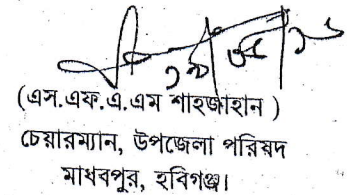 (এস.এফ.এ.এম শাহজাহান )
চেয়ারম্যান, উপজেলা পরিষদ
মাধবপুর, হবিগঞ্জ।